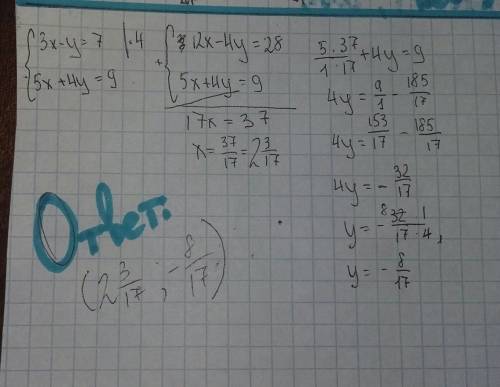 {3x-y=7 |·4
{5x+4y=9
+{12x-4y=28
{5x+4y=9
17x=37
x=37/17=2 3/17
5·37/1·17+4y=9
4y=9/1-185/17
4y=153/17-185/17
4y=-32/17
y=-8 32 1/17·4,
y=-8/17
Ответ:
(2 3/17; -8/17)